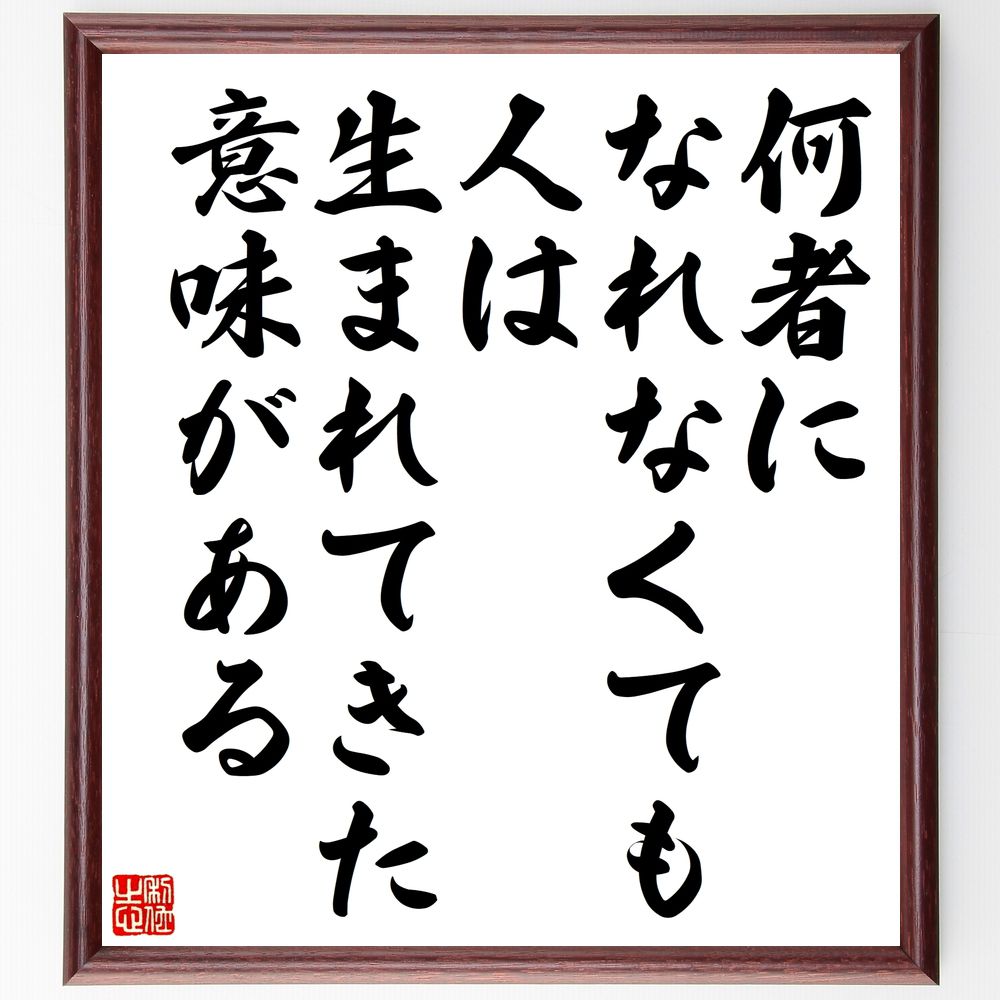 何者に
なれなくても
人は
生まれてきた
意味がある